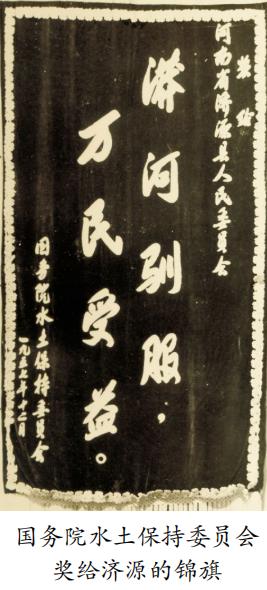 奖给
河南省济源县人民委员会
漭河驯服，
万民受益。
国务院水土保持委员会
一九五七年十二月
国务院水土保持委员会
奖给济源的锦旗